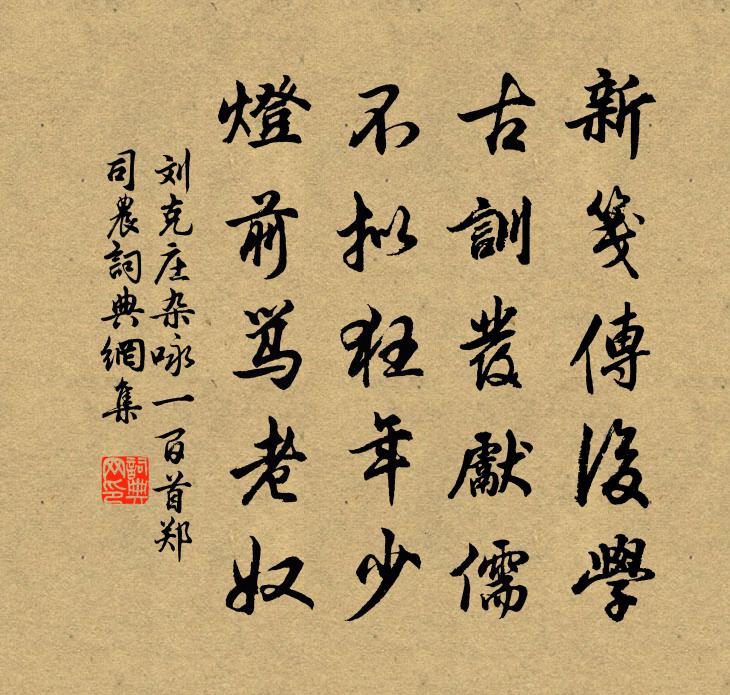 新笺傳後學
古訓發獻儒
不拟狂年少
燈前骂老奴
刘克庄杂咏一百首郑
司農詞典網集
詞典网印